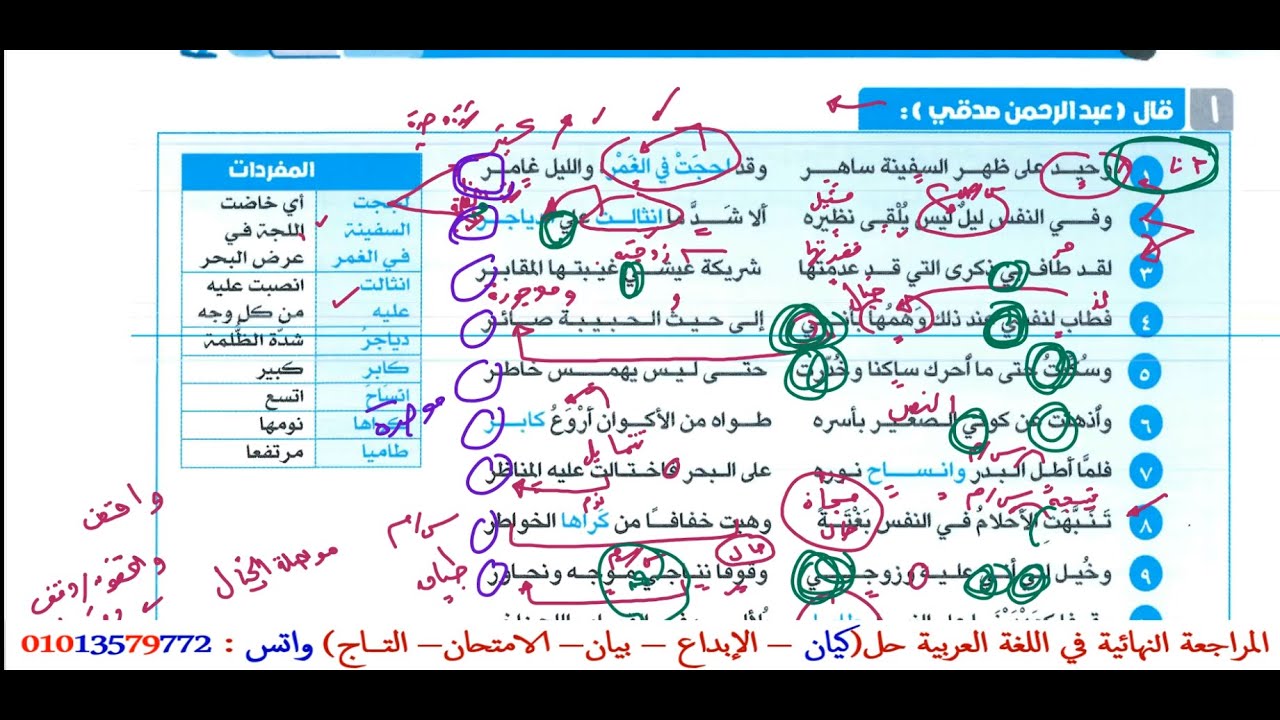 ١ قال ( عبد الرحمن صدقي ) :
١ وحيد على ظهر السفينة ساهر وقد لججت في الغمر والليل غامر
٢ وفي النفس ليل ليس يُلْقى نظيره ألا شدَّ ما انثالت علي الدياجر
٣ لقد طاف بي ذكرى التي قد عدمتها شريكة عيشي غيبتها المقابر
٤ فطاب لنفسي عند ذلك وَهْمُها بأنني إلى حيث الحبيبة صائر
٥ وسكنت حتى ما أحرك ساكنا وخُدّرت حتى ليس يهمس خاطر
٦ وأذهلت عن كوني الصغير بأسره طواه من الأكوان أرْوَعُ كابر
٧ فلمَّا أطل البدر وانساح نوره على البحر فاختالت عليه المناظر
٨ تَنبَّهَتِ الأحلام في النفس بَغْتَةً وهبت خفافا من كَراها الخواطر
٩ وخُيل لي أني عليه وزوجتي وقوفا نناجي موجه ونحاور
المفردات
لججت أي خاضت
السفينة اللجة في
في الغمر عرض البحر
انثالت انصبت عليه
عليه من كل وجه
دياجرُ شدّة الظُّلمة
كابر كبير
انسَاحَ اتسع
كراها نومها
طاميا مرتفعا
مثيل
فقدتها
زوجته
خيال
موجودة
النص
تتمايل
نتيجة
س/م
مجاز
حال
نوم
س/م
حال
واقف
مواصلة الخيال
طباق
المراجعة النهائية في اللغة العربية حل(كيان – الإبداع – بيان– الامتحان– التاج) واتس : 01013579772